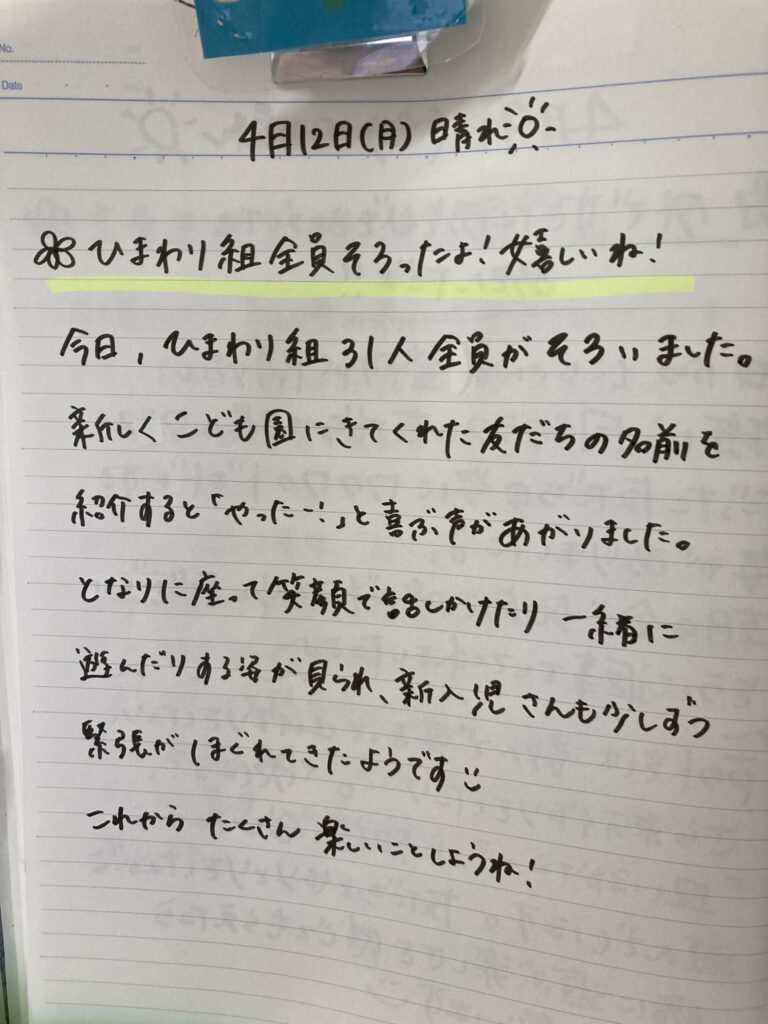 No.
Date
4月12日(月) 晴れ
ひまわり組全員そろったよ!嬉しいね!
今日,ひまわり組31人全員がそろいました。
新しくこども園にきてくれた友だちの名前を
紹介すると「やったー!」と喜ぶ声があがりました。
となりに座って笑顔で話しかけたり一緒に
遊んだりする姿が見られ、新入児さんも少しずつ
緊張がほぐれてきたようです
これからたくさん楽しいことしようね!